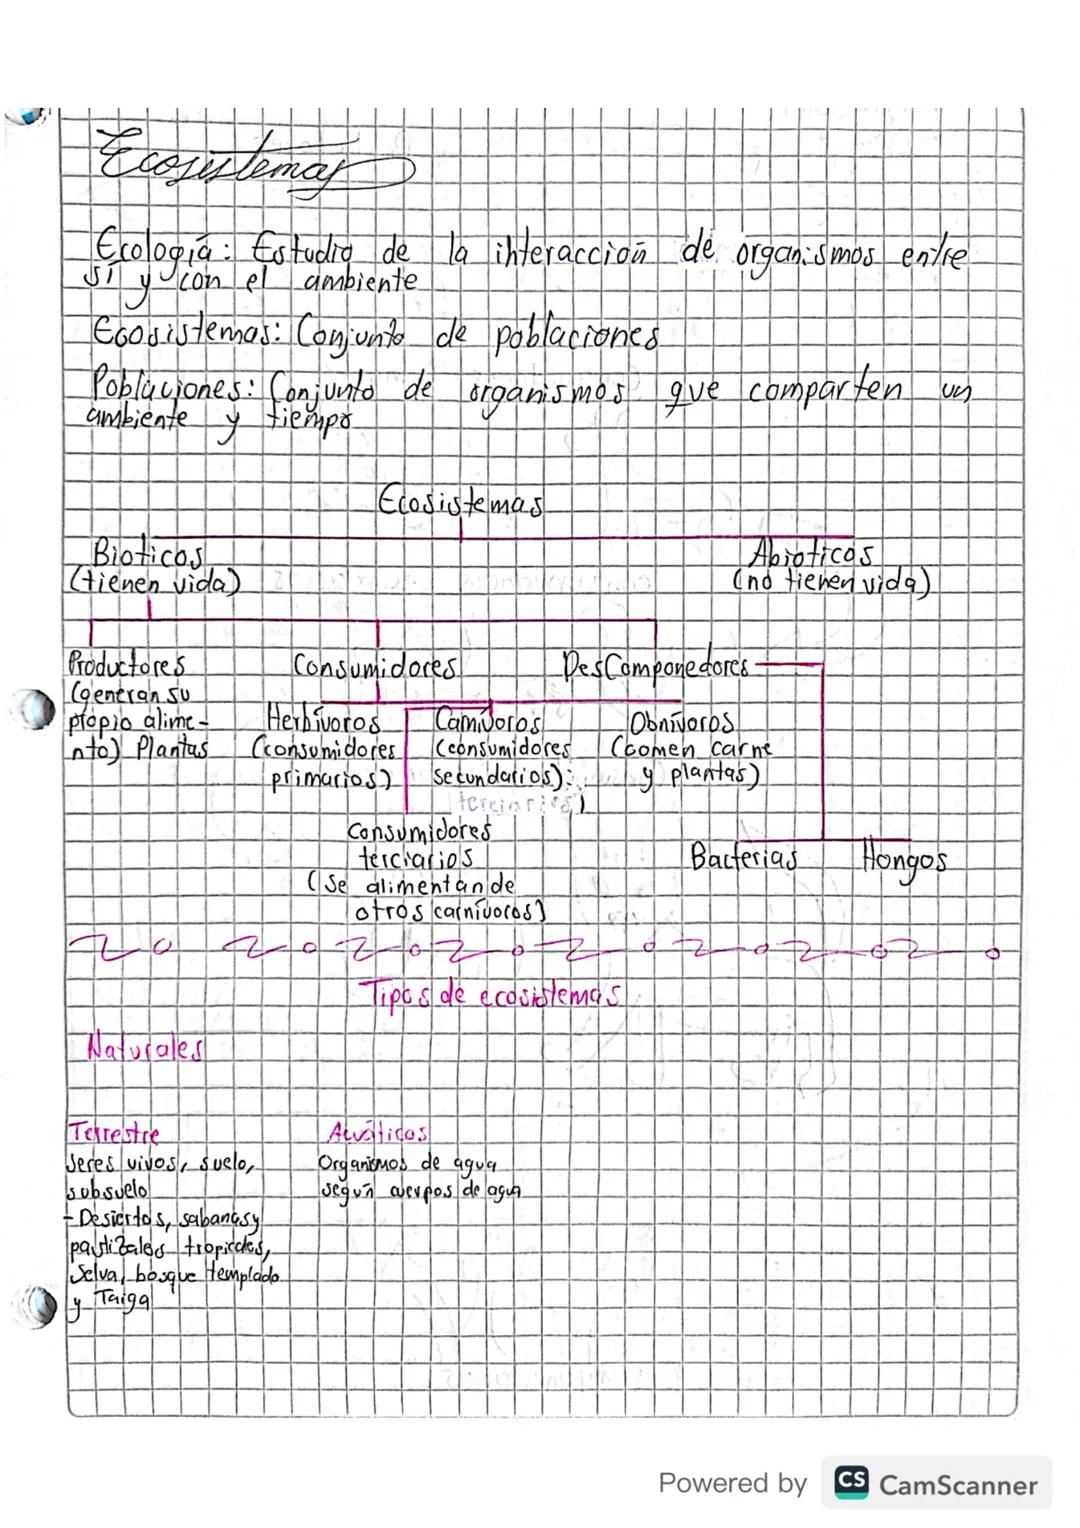 Ecosistemas
Ecología: Estudio de la interacción de organismos entre
sí y con el ambiente
Ecosistemas: Conjunto de poblaciones
Poblaciones: Conjunto de organismos que comparten un
ambiente y tiempo
Ecosistemas
Bioticos Abioticos
(tienen vida) (no tienen vida)
Productores Consumidores DesComponedores
(generan su
propio alime- Herbívoros Carnívoros Obnívoros
nto) Plantas (consumidores (consumidores (comen carne
primarios) secundarios): y plantas)
terciarios)
Consumidores
terciarios Bacterias Hongos
(Se alimentan de
otros carnívoros)
Tipos de ecosistemas
Naturales
Terrestre Acuáticos
Seres vivos, suelo, Organismos de agua
subsuelo según cuerpos de agua
- Desiertos, sabanas y
pastizales tropicales,
Selva, bosque templado
y Taiga
Powered by CS CamScanner